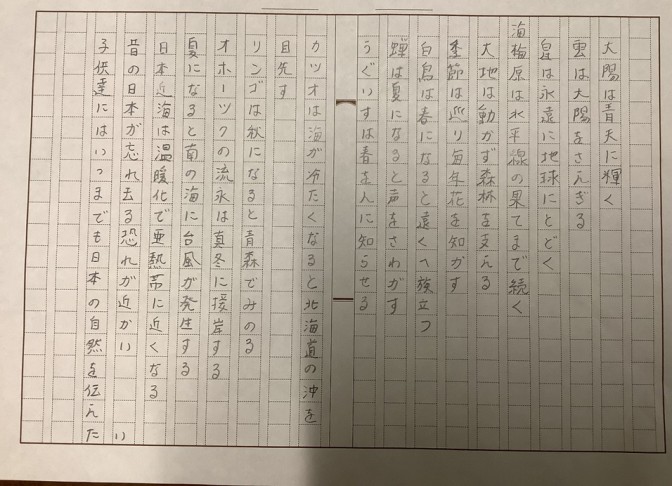 太陽は青天に輝く
雲は太陽をさえぎる
星は永遠に地球にとどく
海梅原は水平線の果てまで続く
大地は動かず森林を支える
季節は巡り毎年花を知かす
白鳥は春になると遠くへ旅立つ
蝉は夏になると声をさわがす
うぐいすは春を人に知らせる
カツオは海が冷たくなると北海道の沖を
目先す
リンゴは秋になると青森でみのる
オホーツクの流氷は真冬に接岸する
夏になると南の海に台風が発生する
日本近海は温暖化で亜熱帯に近くなる
昔の日本が忘れ去る恐れが近かい
子供達にはいつまでも日本の自然を伝えた
い